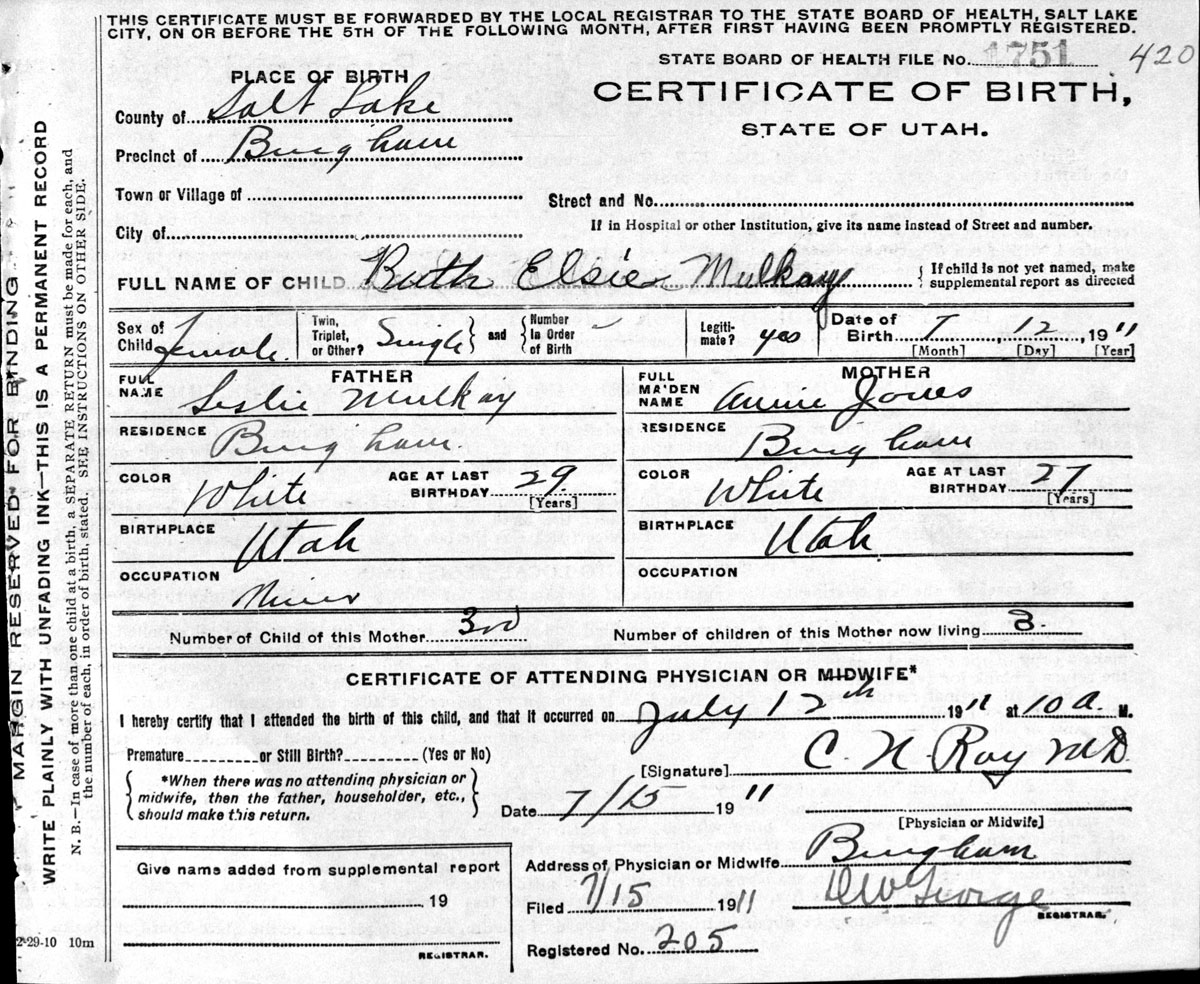 THIS CERTIFICATE MUST BE FORWARDED BY THE LOCAL REGISTRAR TO THE STATE BOARD OF HEALTH, SALT LAKE
CITY, ON OR BEFORE THE 5TH OF THE FOLLOWING MONTH, AFTER FIRST HAVING BEEN PROMPTLY REGISTERED.
STATE BOARD OF HEALTH FILE No. 1751 420
PLACE OF BIRTH
CERTIFICATE OF BIRTH,
STATE OF UTAH.
County of Salt Lake
Precinct of Bingham
Town or Village of
Street and No.
City of
If in Hospital or other Institution, give its name instead of Street and number.
FULL NAME OF CHILD Ruth Elsie Mulkay { If child is not yet named, make
supplemental report as directed
Sex of Child Female Twin, Triplet, or Other? Single and Number In Order of Birth Legiti- mate? yes Date of Birth 7, 12, 1911
[Month] [Day] [Year]
FATHER
FULL NAME Leslie Mulkay
RESIDENCE Bingham.
COLOR White AGE AT LAST BIRTHDAY 29 [Years]
BIRTHPLACE Utah
OCCUPATION Miner
MOTHER
FULL MAIDEN NAME Annie Jones
RESIDENCE Bingham
COLOR White AGE AT LAST BIRTHDAY 27 [Years]
BIRTHPLACE Utah
OCCUPATION
Number of Child of this Mother 3rd Number of children of this Mother now living 3.
CERTIFICATE OF ATTENDING PHYSICIAN OR MIDWIFE*
I hereby certify that I attended the birth of this child, and that it occurred on July 12th 1911 at 10 a. M.
Premature or Still Birth? (Yes or No)
[Signature] C. N. Ray M.D.
*When there was no attending physician or
midwife, then the father, householder, etc.,
should make this return.
Date 7/15 1911
[Physician or Midwife]
Address of Physician or Midwife Bingham
Filed 7/15 1911 D W George
REGISTRAR.
Registered No. 205
Give name added from supplemental report
19
REGISTRAR.
2-29-10 10m
MARGIN RESERVED FOR BINDING
WRITE PLAINLY WITH UNFADING INK—THIS IS A PERMANENT RECORD
N. B.—In case of more than one child at a birth, a SEPARATE RETURN must be made for each, and
the number of each, in order of birth, stated. SEE INSTRUCTIONS ON OTHER SIDE.